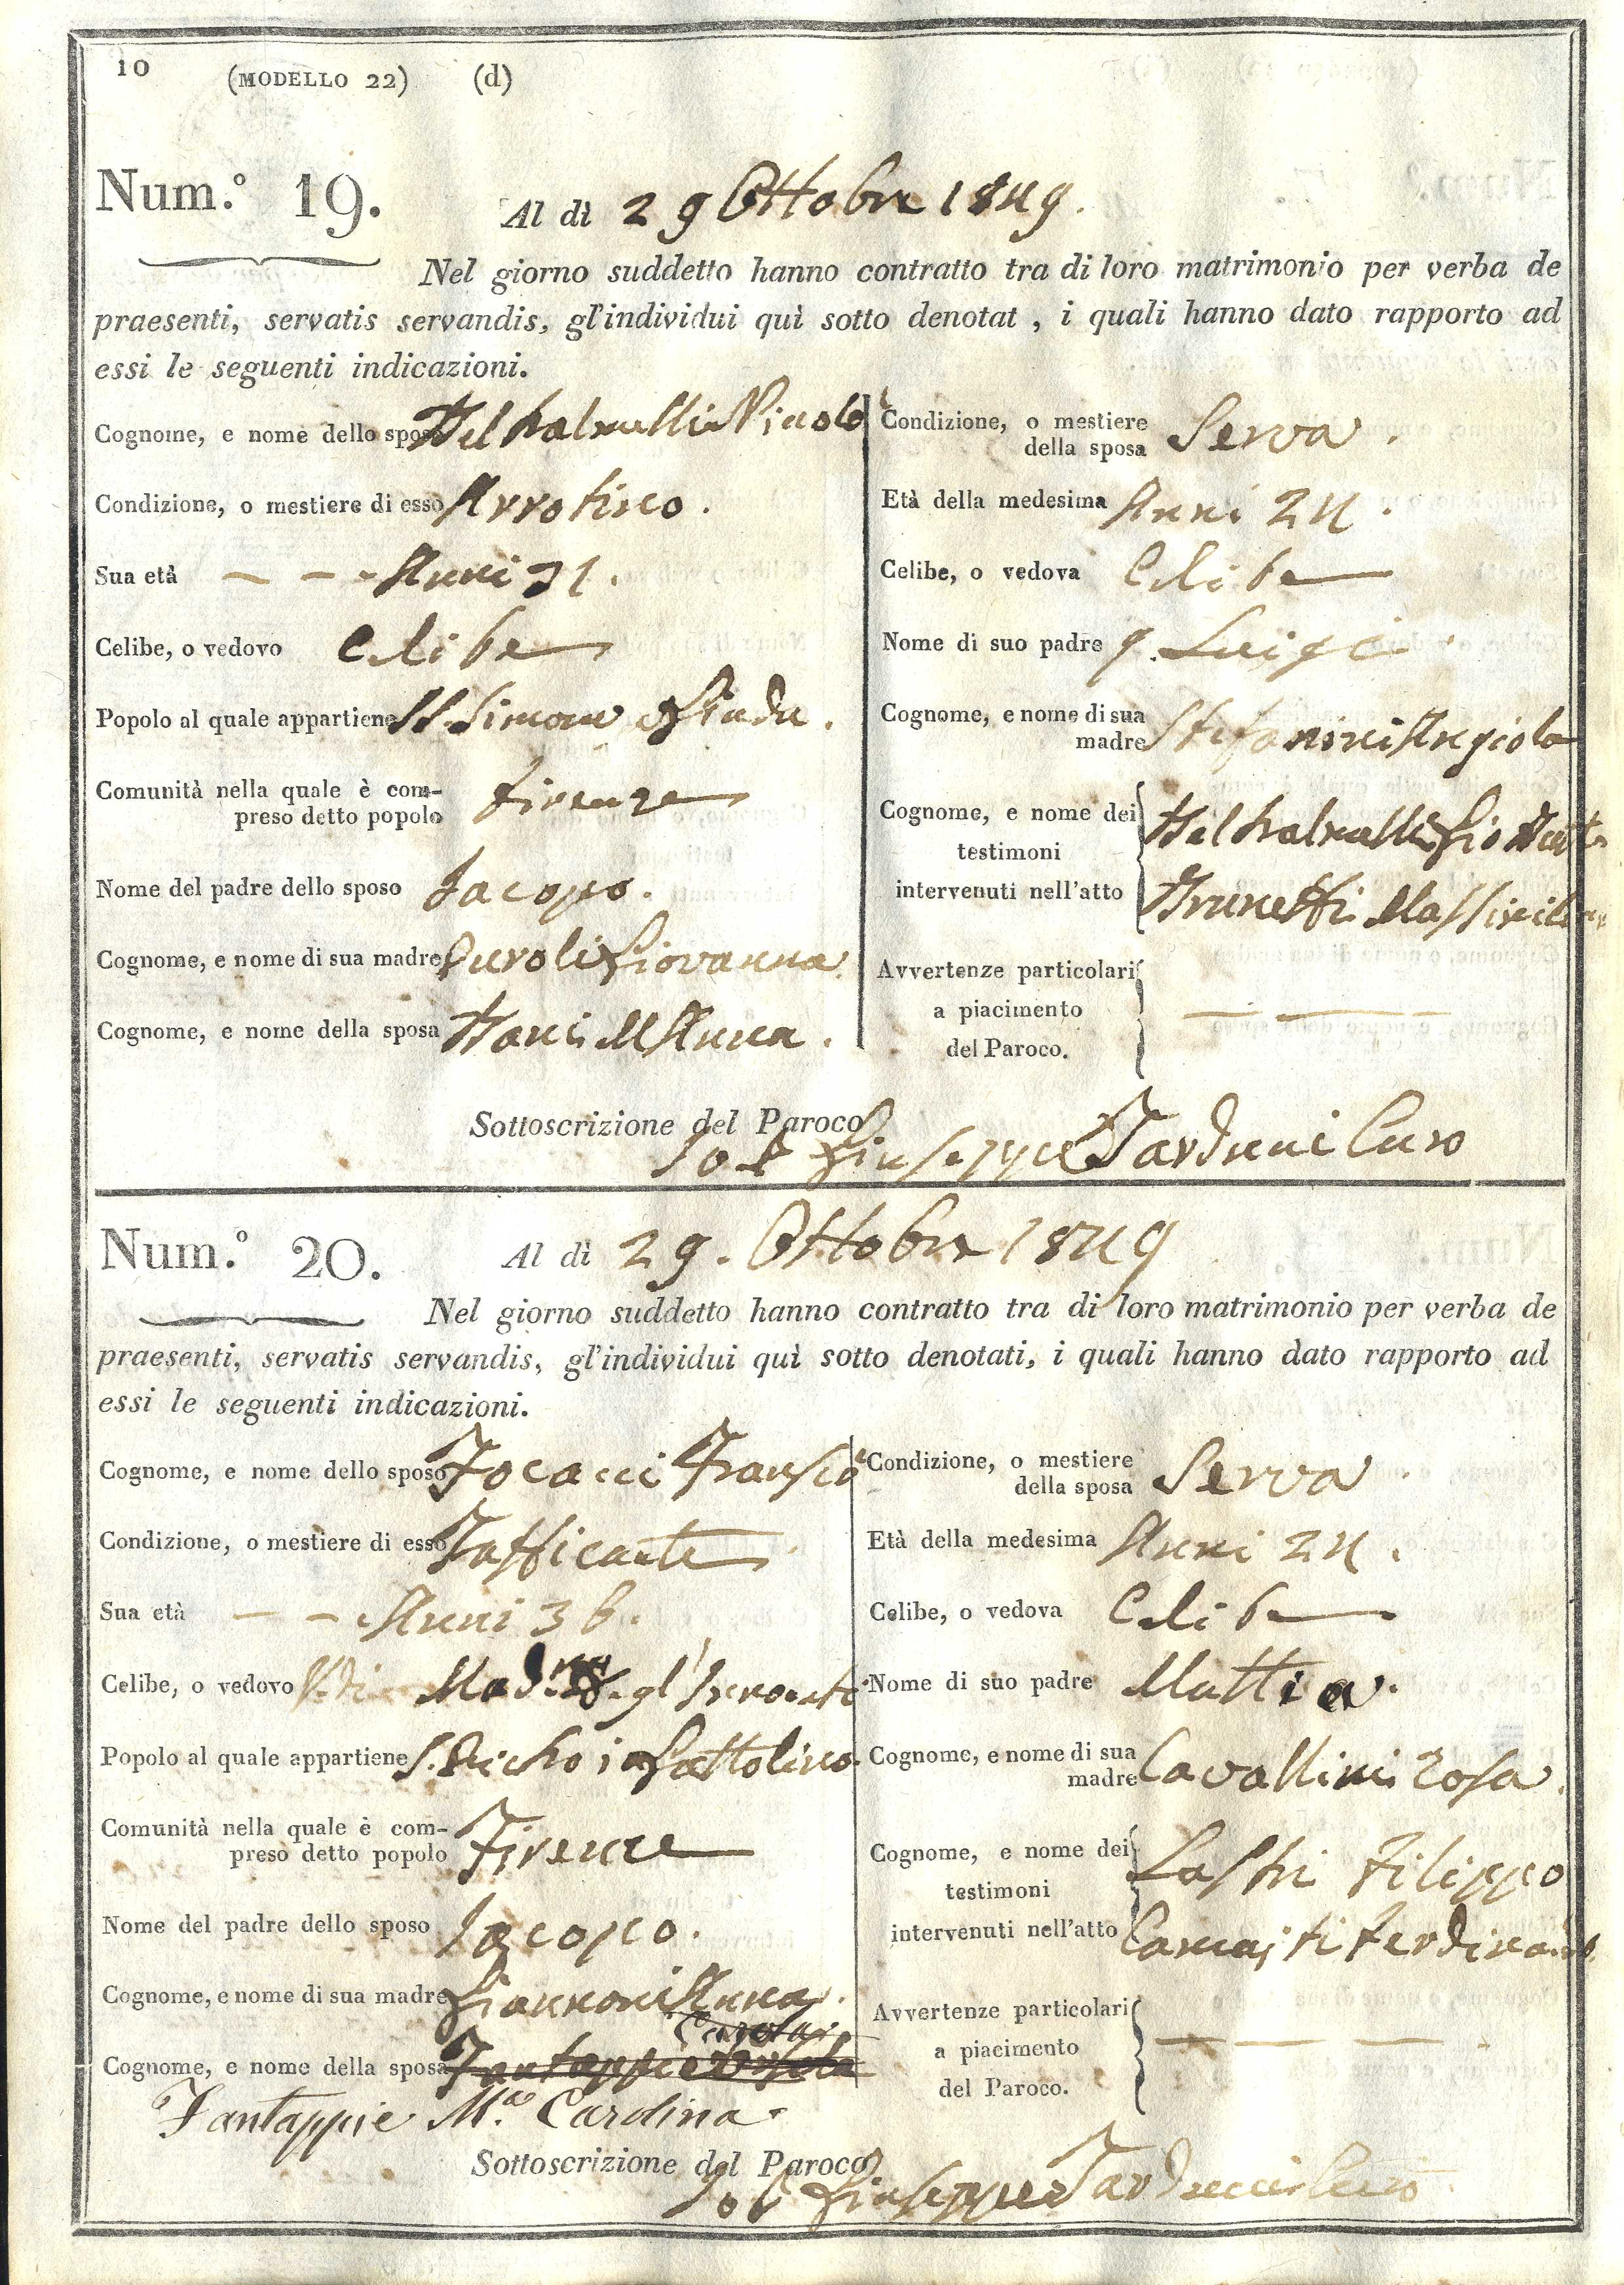 10 (MODELLO 22) (d)
Num.º 19. Al dì 29 Ottobre 1849.
Nel giorno suddetto hanno contratto tra di loro matrimonio per verba de
praesenti, servatis servandis, gl'individui quì sotto denotat , i quali hanno dato rapporto ad
essi le seguenti indicazioni.
Cognome, e nome dello sposo
Condizione, o mestiere di esso Arrotino.
Sua età — — - Anni 31.
Celibe, o vedovo Celibe
Popolo al quale appartiene SS. Simone e Giuda.
Comunità nella quale è com-
preso detto popolo Firenze
Nome del padre dello sposo Jacopo.
Cognome, e nome di sua madre Giovanna.
Cognome, e nome della sposa M Anna.
Condizione, o mestiere
della sposa Serva.
Età della medesima Anni 24.
Celibe, o vedova Celibe
Nome di suo padre q. Luigi
Cognome, e nome di sua
madre Stefanini Angiola
Cognome, e nome dei
testimoni
intervenuti nell'atto Brunetti
Avvertenze particolari
a piacimento
del Paroco. — —
Sottoscrizione del Paroco
Giuseppe Tarduci Curo
Num.º 20. Al dì 29. Ottobre 1849
Nel giorno suddetto hanno contratto tra di loro matrimonio per verba de
praesenti, servatis servandis, gl'individui quì sotto denotati, i quali hanno dato rapporto ad
essi le seguenti indicazioni.
Cognome, e nome dello sposo Focacci Fransco
Condizione, o mestiere di esso
Sua età — — Anni 36.
Celibe, o vedovo
Popolo al quale appartiene Gattolino.
Comunità nella quale è com-
preso detto popolo Firenze
Nome del padre dello sposo Jacopo.
Cognome, e nome di sua madre Giannoni Anna.
Cognome, e nome della sposa
Fantappie M.a Carolina.
Condizione, o mestiere
della sposa Serva.
Età della medesima Anni 24.
Celibe, o vedova Celibe
Nome di suo padre Mattia.
Cognome, e nome di sua
madre Cavallini Rosa.
Cognome, e nome dei
testimoni Lastri Filippo
intervenuti nell'atto Ferdinando
Avvertenze particolari
a piacimento
del Paroco. — — —
Sottoscrizione del Paroco
Giuseppe Tarducci Curo